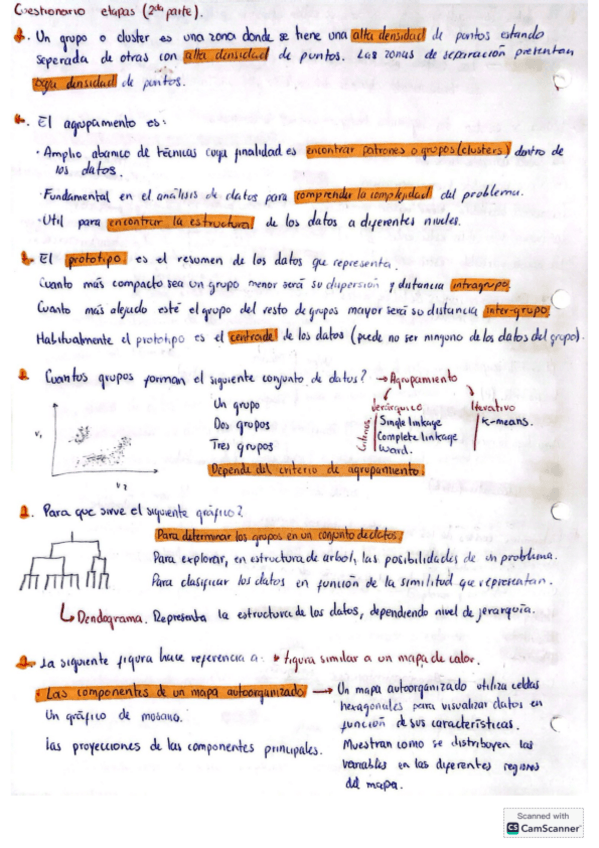 Cuestionario etapas (2da parte).
1. Un grupo o cluster es una zona donde se tiene una alta densidad de puntos estando
seperada de otras con alta densidad de puntos. Las zonas de separación presentan
baja densidad de puntos.
2. El agrupamento es:
· Amplio abanico de técnicas cuya finalidad es encontrar patrones o grupos (clusters) dentro de
los datos.
· Fundamental en el análisis de datos para comprender la complejidad del problema.
· Util para encontrar la estructura de los datos a diferentes niveles.
3. El prototipo es el resumen de los datos que representa.
Cuanto más compacto sea un grupo menor será su dispersión y distancia intragrupo.
Cuanto más alejado esté el grupo del resto de grupos mayor será su distancia inter-grupo.
Habitualmente el prototipo es el centroide de los datos (puede no ser ninguno de los datos del grupo).
Cuantos grupos forman el siguiente conjunto de datos? → Agrupamiento
Un grupo
Dos grupos
Tres grupos
Depende del criterio de agrupamiento.
Jerárquico
Criterios
Single linkage
Complete linkage
Ward.
Iterativo
K-means.
V1
V2
Para que sirve el siguiente gráfico?
Para determinar los grupos en un conjunto de datos.
Para explorar, en estructura de arbol, las posibilidades de un problema.
Para clasificar los datos en función de la similitud que representan.
Dendograma. Representa la estructura de los datos, dependiendo nivel de jerarquía.
La siguiente figura hace referencia a: figura similar a un mapa de calor.
· Las componentes de un mapa autoorganizado → Un mapa autoorganizado utiliza celdas
hexagonales para visualizar datos en
función de sus características.
Muestran como se distribuyen las
variables en las diferentes regiones
del mapa.
Un gráfico de mosaico.
las proyecciones de las componentes principales.
Scanned with
CS CamScanner